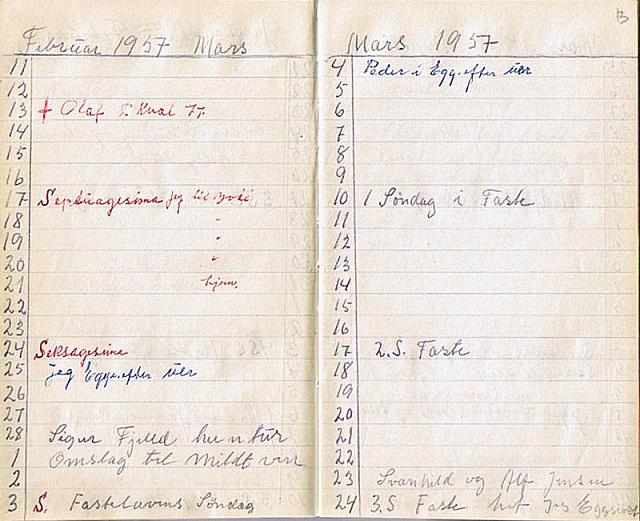 Februar 1957 Mars
11
12
13 + Olaf P. Kval 77
14
15
16
17 Septuagesima jeg til
18 "
19 "
20 "
21 hjem.
22
23
24 Seksagesima
25 jeg Egge efter
26
27
28 Sigur Fjelld her en tur
1 Omslag til mildt veir
2
3 S. Fastelavns Söndag
B
Mars 1957
4 Peder i Egg. efter
5
6
7
8
9
10 1 Söndag i Faste
11
12
13
14
15
16
17 2.S. Faste
18
19
20
21
22
23 Svanhild og Alf Jensen
24 3.S Faste